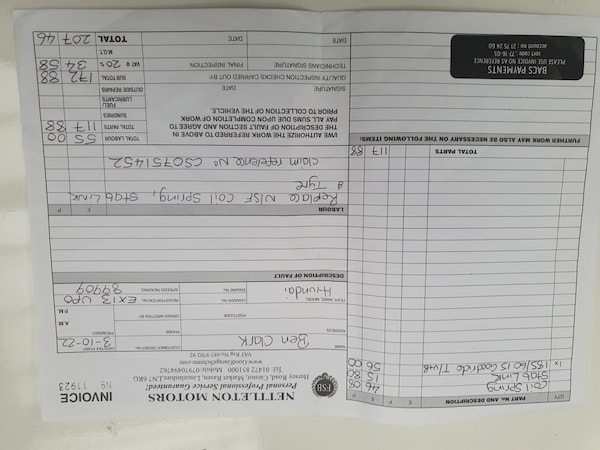 NETTLETON MOTORS
Personal Professional Service Guaranteed!
FSB
INVOICE
No 11923
Harvey Road, Caistor, Market Rasen, Lincolnshire,
www.GoodGarageScheme.com
NAME
Ben Clark
CUSTOMER ORDER No.
DATE/TAX POINT
3-10-22
ADDRESS
PHONE
PROMISED
A.M.
P.M.
POSTCODE
ORDER WRITTEN BY
YEAR, MAKE, MODEL
Hyundai
CHASSIS No.
ENGINE No.
REGISTRATION No.
EX13 UPO
SPEEDO READING
89909
DESCRIPTION OF FAULT
LABOUR
£ P
Replace N/SF Coil Spring, Stab Link
& Tyre
claim reference No CS0751452
I/WE AUTHORIZE THE WORK REFERRED TO ABOVE IN
THE DESCRIPTION OF FAULT SECTION AND AGREE TO
PAY ALL SUMS DUE UPON COMPLETION OF WORK
PRIOR TO COLLECTION OF THE VEHICLE.
SIGNATURE
DATE
QUALITY INSPECTION CHECKS CARRIED OUT BY:
TECHNICIANS SIGNATURE
FINAL INSPECTION
DATE
DATE
TOTAL LABOUR 55 00
TOTAL PARTS 117 88
SUNDRIES
FUEL/
LUBRICANTS
OUTSIDE REPAIRS
SUB TOTAL 172 88
VAT @ 20% 34 58
M.O.T.
TOTAL 207 46
QTY.
PART No. AND DESCRIPTION
£ P
£ P
Coil Spring 46 08
Stab Link 15 80
1x 155/60 15 Goodride T/V+B 56 00
TOTAL PARTS
117 88
FURTHER WORK MAY ALSO BE NECESSARY ON THE FOLLOWING ITEMS:
BACS PAYMENTS
PLEASE USE INVOICE NO AS REFERENCE